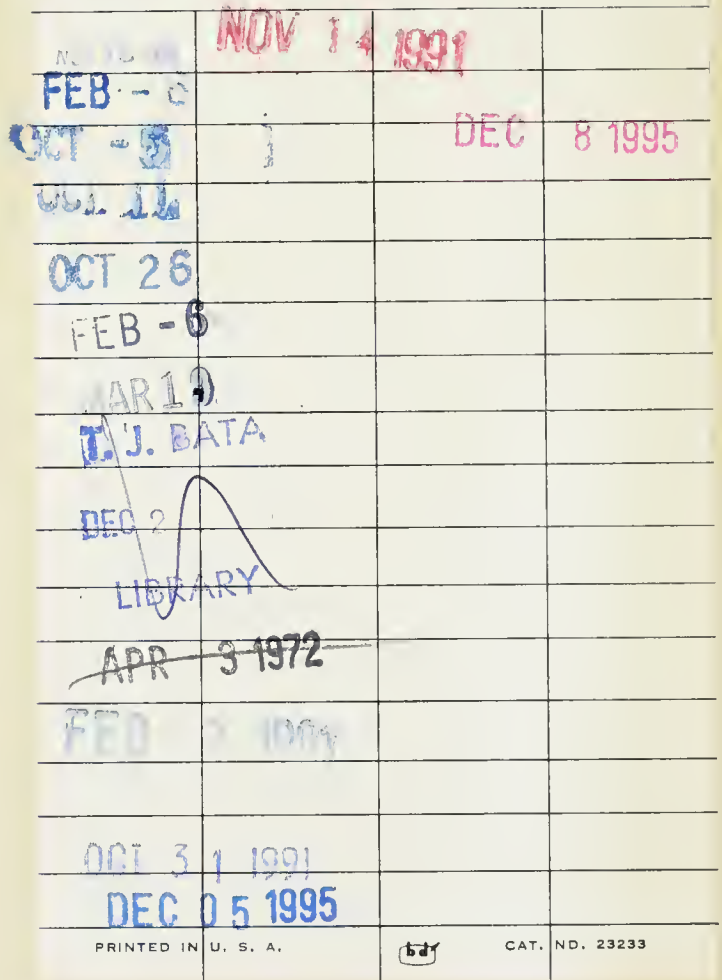 NOV 14 1991
FEB -
OCT - 5
DEC 8 1995
OCT 26
FEB - 6
MAR
T. J. BATA
DEC 2
LIBRARY
APR 3 1972
OCT 31 1991
DEC 05 1995
PRINTED IN U. S. A.
bd
CAT. NO. 23233